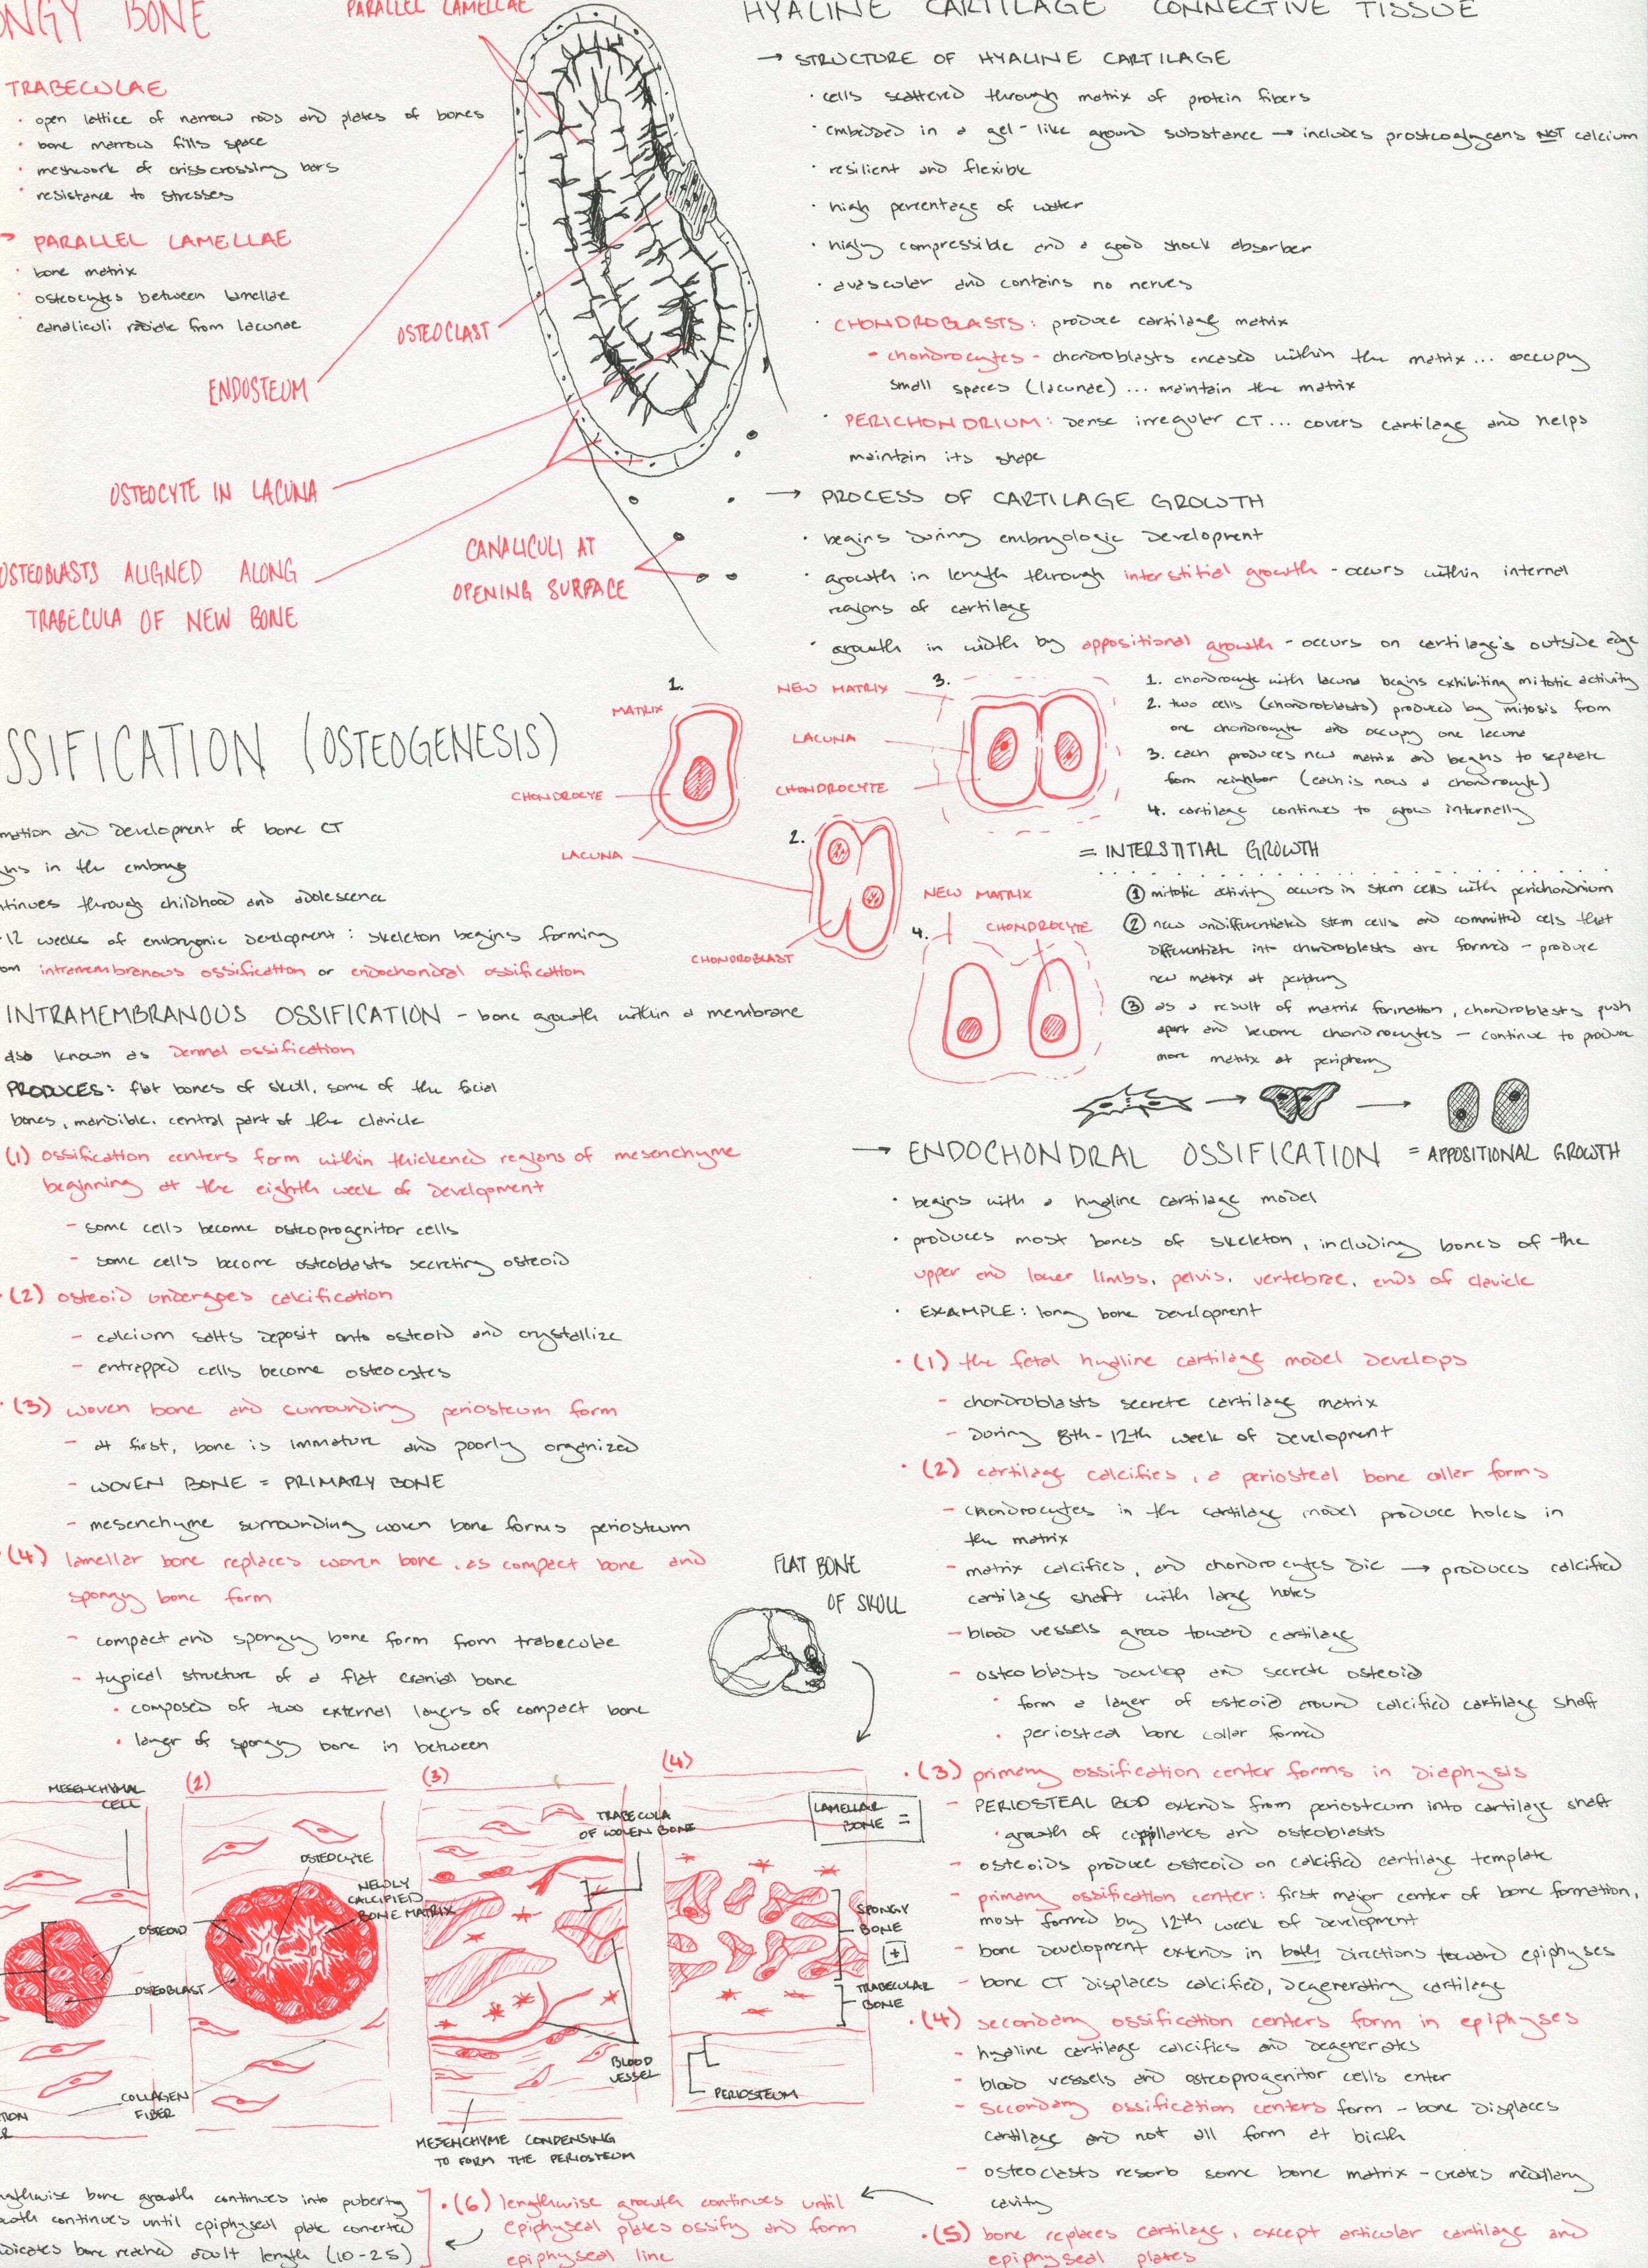 NGY BONE
PARALLEL LAMELLAE
TRABECULAE
· open lattice of narrow rods and plates of bones
· bone marrow fills space
· meshwork of crisscrossing bars
· resistance to stresses
→ PARALLEL LAMELLAE
· bone matrix
· osteocytes between lamellae
· canaliculi radiate from lacunae
OSTEOCLAST
ENDOSTEUM
OSTEOCYTE IN LACUNA
OSTEOBLASTS ALIGNED ALONG
TRABECULA OF NEW BONE
CANALICULI AT
OPENING SURFACE
SSIFICATION (OSTEOGENESIS)
mation and development of bone CT
ns in the embryo
tinues through childhood and adolescence
12 weeks of embryonic development: skeleton begins forming
om intramembranous ossification or endochondral ossification
INTRAMEMBRANOUS OSSIFICATION - bone growth within a membrane
also known as dermal ossification
PRODUCES: flat bones of skull, some of the facial
bones, mandible, central part of the clavicle
(1) ossification centers form within thickened regions of mesenchyme
beginning at the eighth week of development
- some cells become osteoprogenitor cells
- some cells become osteoblasts secreting osteoid
· (2) osteoid undergoes calcification
- calcium salts deposit onto osteoid and crystallize
- entrapped cells become osteocytes
· (3) woven bone and surrounding periosteum form
- at first, bone is immature and poorly organized
- WOVEN BONE = PRIMARY BONE
- mesenchyme surrounding woven bone forms periosteum
· (4) lamellar bone replaces woven bone, as compact bone and
spongy bone form
- compact and spongy bone form from trabeculae
- typical structure of a flat cranial bone
· composed of two external layers of compact bone
· layer of spongy bone in between
FLAT BONE
OF SKULL
MESENCHYMAL
CELL
OSTEOID
OSTEOBLAST
COLLAGEN
FIBER
TION
R
(2)
OSTEOCYTE
NEWLY
CALCIFIED
BONE MATRIX
(3)
TRABECULA
OF WOVEN BONE
BLOOD
VESSEL
MESENCHYME CONDENSING
TO FORM THE PERIOSTEUM
(4)
LAMELLAR
BONE =
SPONGY
BONE
+
TRABECULAR
BONE
PERIOSTEUM
ngthwise bone growth continues into puberty
owth continues until epiphyseal plate converted
dicates bone reached adult length (10-25)
· (6) lengthwise growth continues until
epiphyseal plates ossify and form
epiphyseal line
HYALINE CARTILAGE CONNECTIVE TISSUE
→ STRUCTURE OF HYALINE CARTILAGE
· cells scattered through matrix of protein fibers
· embedded in a gel-like ground substance → includes prosteoglycans NOT calcium
· resilient and flexible
· high percentage of water
· higly compressible and a good shock absorber
· avascular and contains no nerves
· CHONDROBLASTS: produce cartilage matrix
- chondrocytes - chondroblasts encased within the matrix... occupy
small spaces (lacunae)... maintain the matrix
· PERICHONDRIUM: dense irregular CT... covers cartilage and helps
maintain its shape
→ PROCESS OF CARTILAGE GROWTH
· begins during embryologic development
· growth in length through interstitial growth - occurs within internal
regions of cartilage
· growth in width by appositional growth - occurs on cartilage's outside edge
1.
MATRIX
CHONDROCYE
LACUNA
2.
CHONDROBLAST
3.
NEW MATRIX
LACUNA
CHONDROCYTE
4.
NEW MATRIX
CHONDROCYTE
1. chondrocyte with lacuna begins exhibiting mitotic activity
2. two cells (chondroblasts) produced by mitosis from
one chondrocyte and occupy one lacuna
3. each produces new matrix and begins to separate
from neighbor (each is now a chondrocyte)
4. cartilage continues to grow internally
= INTERSTITIAL GROWTH
① mitotic activity occurs in stem cells with perichondrium
② new undifferentiated stem cells and committed cels that
differentiate into chondroblasts are formed - produce
new matrix at periphery
③ as a result of matrix formation, chondroblasts push
apart and become chondrocytes - continue to produce
more matrix at periphery
= APPOSITIONAL GROWTH
→ ENDOCHONDRAL OSSIFICATION
· begins with a hyaline cartilage model
· produces most bones of skeleton, including bones of the
upper and lower limbs, pelvis, vertebrae, ends of clavicle
· EXAMPLE: long bone development
· (1) the fetal hyaline cartilage model develops
- chondroblasts secrete cartilage matrix
- During 8th-12th week of development
· (2) cartilage calcifies, a periosteal bone collar forms
- chondrocytes in the cartilage model produce holes in
the matrix
- matrix calcifies, and chondrocytes die → produces calcified
cartilage shaft with large holes
- blood vessels grow toward cartilage
- osteoblasts develop and secrete osteoid
· form a layer of osteoid around calcified cartilage shaft
· periosteal bone collar formed
· (3) primary ossification center forms in diaphysis
- PERIOSTEAL BUD extends from periosteum into cartilage shaft
· growth of capillaries and osteoblasts
- osteoids produce osteoid on calcified cartilage template
- primary ossification center: first major center of bone formation,
most formed by 12th week of development
- bone development extends in both directions toward epiphyses
- bone CT displaces calcified, degenerating cartilage
· (4) secondary ossification centers form in epiphyses
- hyaline cartilage calcifies and degenerates
- blood vessels and osteoprogenitor cells enter
- secondary ossification centers form - bone displaces
cartilage and not all form at birth
- osteoclasts resorb some bone matrix - creates medullary
cavity
· (5) bone replaces cartilage, except articular cartilage and
epiphyseal plates